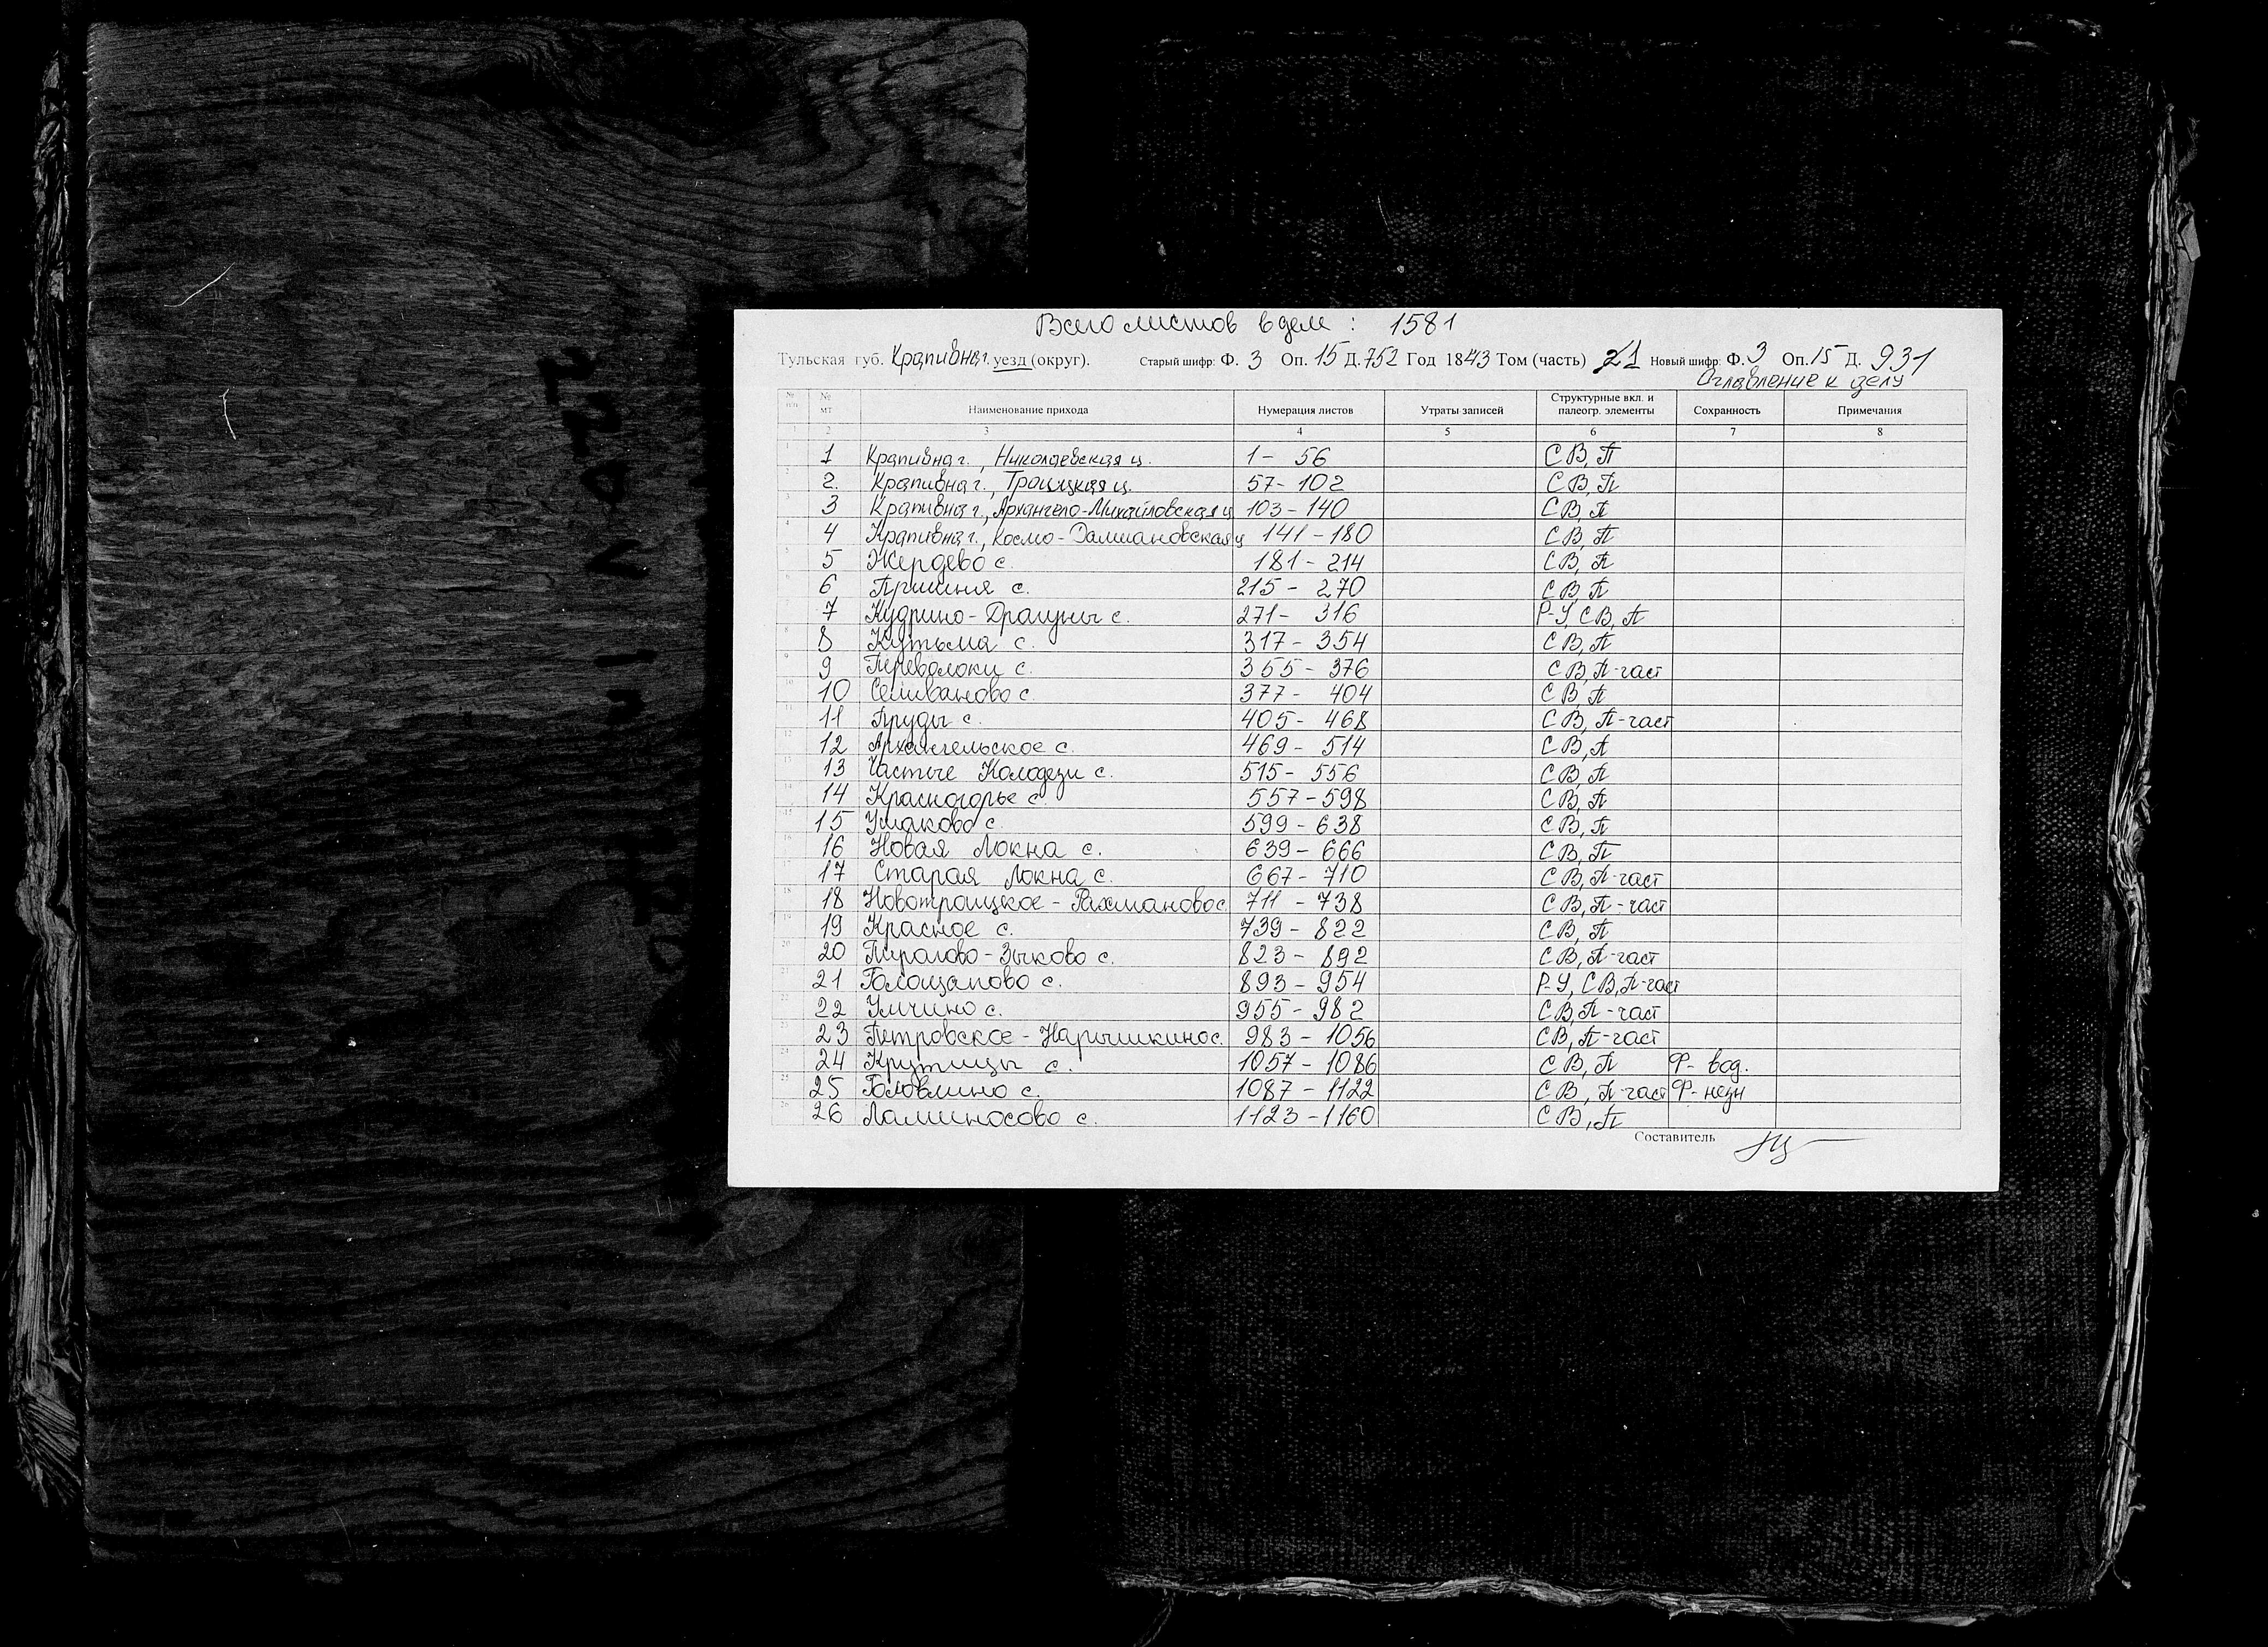 Всего листов в деле : 1581
Тульская губ. Крапивна г. уезд (округ). Старый шифр: Ф. 3 Оп. 15 Д. 752 Год 1843 Том (часть) 21 Новый шифр: Ф. 3 Оп. 15 Д. 931
Оглавление к делу
№ п/п № мт Наименование прихода Нумерация листов Утраты записей Структурные вкл. и палеогр. элементы Сохранность Примечания
1 2 3 4 5 6 7 8
1 1 Крапивна г., Николаевская ц. 1 - 56 СВ, П
2 2. Крапивна г., Троицкая ц. 57 - 102 СВ, П
3 3 Крапивна г., Архангело-Михайловская ц 103 - 140 СВ, П
4 4 Крапивна г., Космо-Дамиановская ц 141 - 180 СВ, П
5 5 Жердево с. 181 - 214 СВ, П
6 6 Пришня с. 215 - 270 СВ, П
7 7 Кудрино-Драгуны с. 271 - 316 Р-У, СВ, П
8 8 Кутьма с. 317 - 354 СВ, П
9 9 Переволоки с. 355 - 376 СВ, П-част
10 10 Селиваново с. 377 - 404 СВ, П
11 11 Пруды с. 405 - 468 СВ, П-част
12 12 Архангельское с. 469 - 514 СВ, П
13 13 Частые Колодези с. 515 - 556 СВ, П
14 14 Красногорье с 557 - 598 СВ, П
15 15 Ушаково с. 599 - 638 СВ, П
16 16 Новая Локна с. 639 - 666 СВ, П
17 17 Старая Локна с. 667 - 710 СВ, П-част
18 18 Новотроицкое - Рахманово с 711 - 738 СВ, П-част
19 19 Красное с. 739 - 822 СВ, П
20 20 Пирогово-Зыково с. 823 - 892 СВ, П-част
21 21 Голощапово с. 893 - 954 Р-У, СВ, П-част
22 22 Умчино с. 955 - 982 СВ, П-част
23 23 Петровское - Нарышкино с. 983 - 1056 СВ, П-част
24 24 Крутицы с. 1057 - 1086 СВ, П Ф- вод.
25 25 Головлино с. 1087 - 1122 СВ, П-част Ф-
26 26 Ламиносово с. 1123 - 1160 СВ, П
Составитель